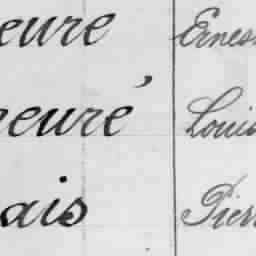 eure Ernes
eeuré Louis
ais Pier